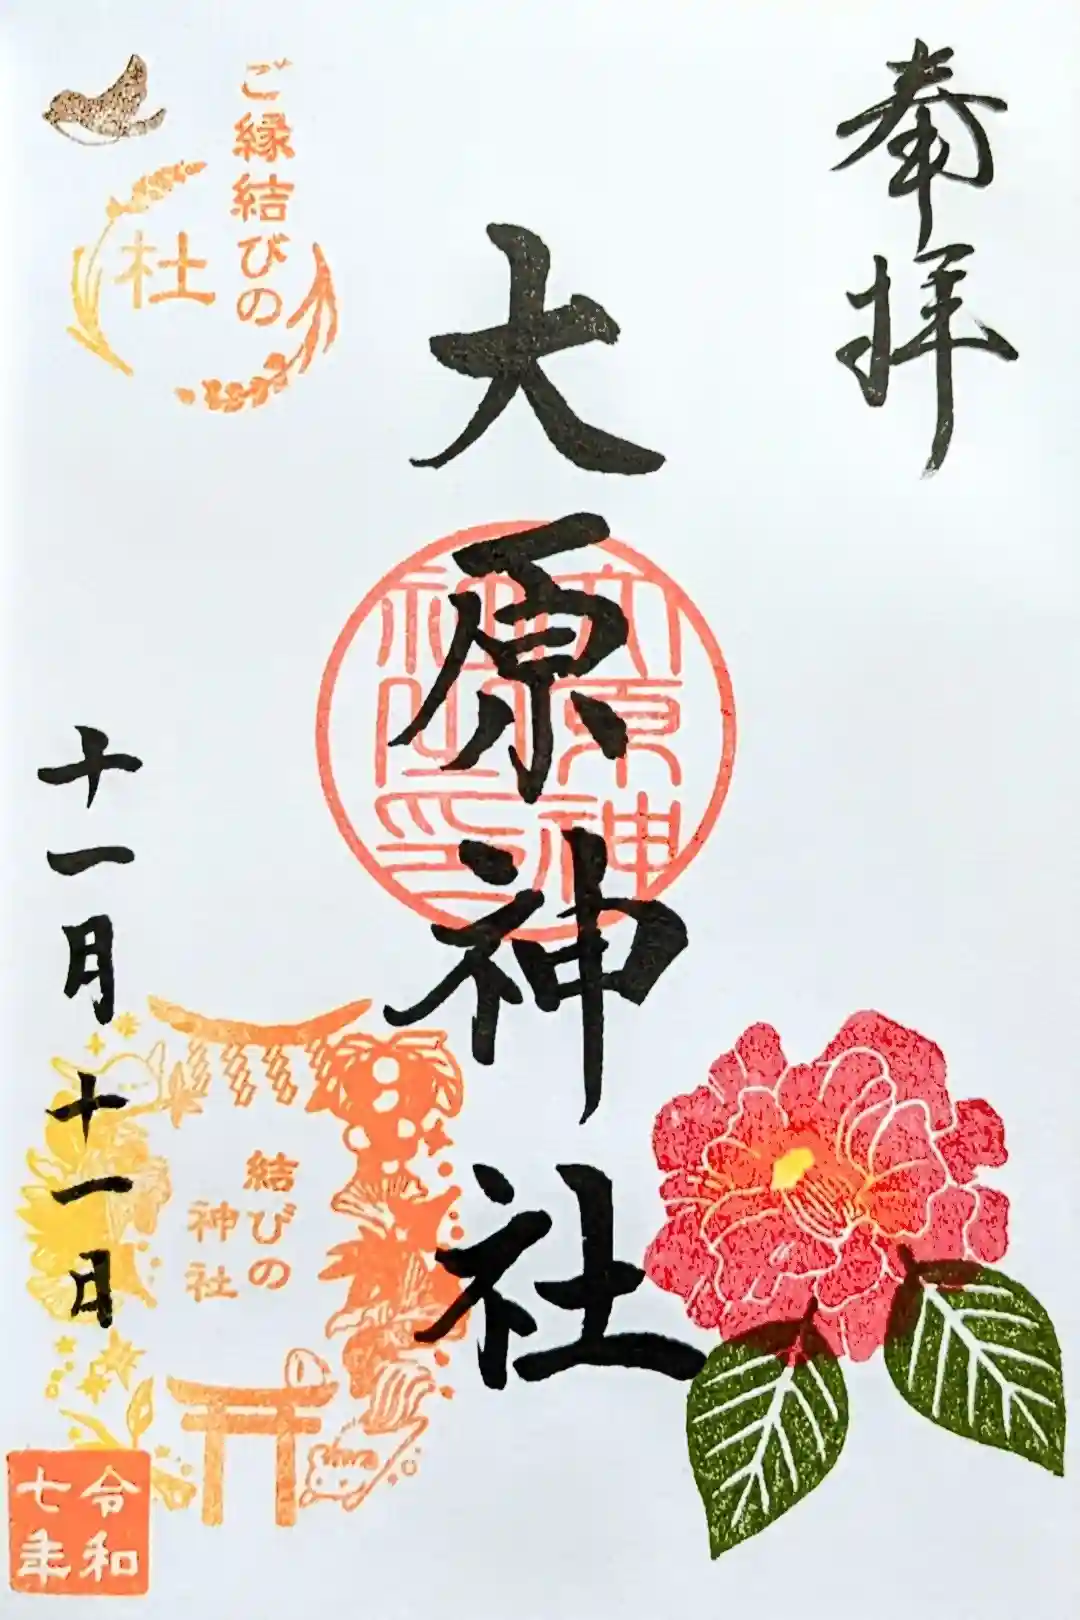 奉拝
大原神社
大原神社之印
ご縁結びの
杜
結びの
神社
十一月十一日
令和
七年